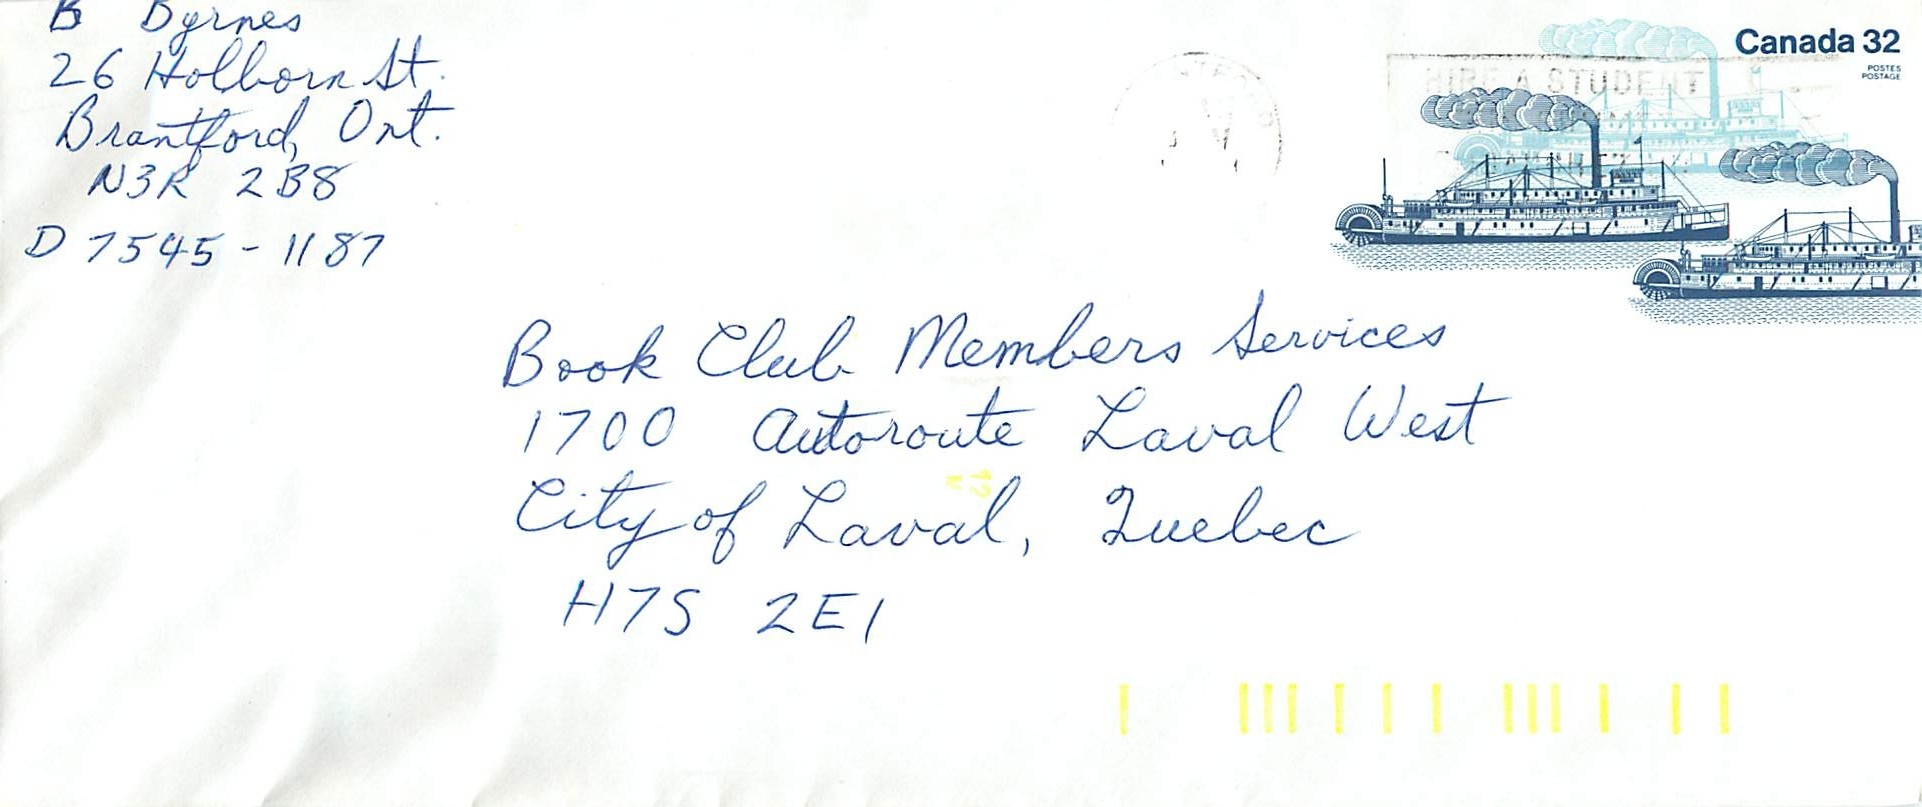 B Byrnes
26 Holborn St.
Brantford, Ont.
N3R 2B8
D 7545-1187
Canada 32
POSTES
POSTAGE
HIRE A STUDENT
Book Club Members Services
1700 Autoroute Laval West
City of Laval, Quebec
H7S 2E1